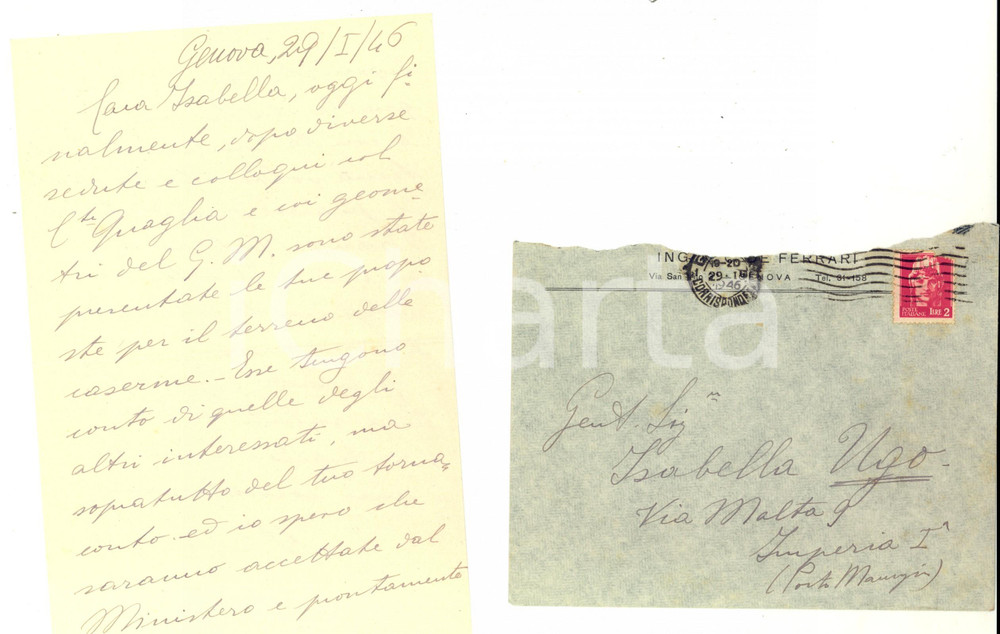 Genova, 29/I/46
Cara Isabella, oggi fi-
nalmente, dopo diverse
sedute e colloqui col
C.te Quaglia e coi geome-
tri del G. M. sono state
presentate le tue propo
ste per il terreno delle
caserme. - Esse tengono
conto di quelle degli
altri interessati, ma
sopratutto del tuo torna=
conto. ed io spero che
saranno accettate dal
Ministero e prontamente
ING. FERRARI
Via San NOVA Tel. 81-158
19-20
29. 1
1946
CORRISPONDE
POSTE ITALIANE LIRE 2
Gent. Sig.na
Isabella Ugo.
Via Malta 9
Imperia Iª
(Porto Maurizio)
iCharta